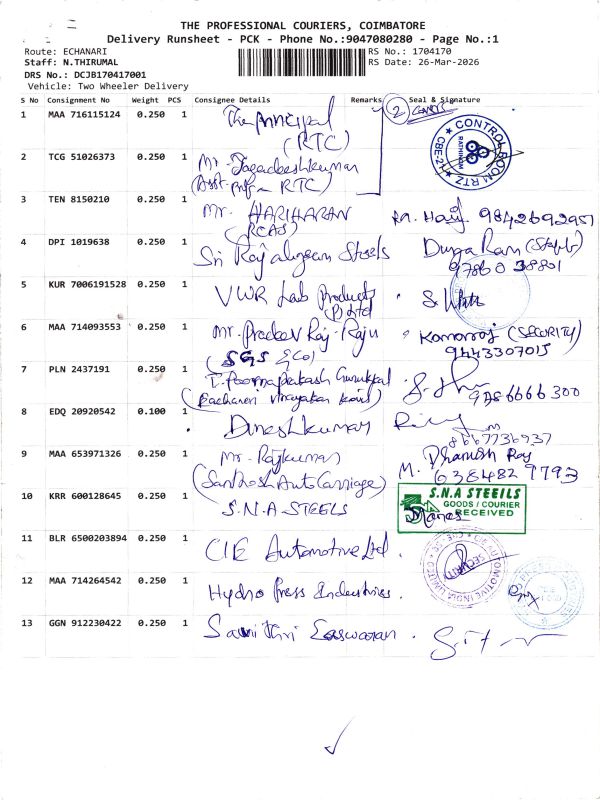 THE PROFESSIONAL COURIERS, COIMBATORE
Delivery Runsheet - PCK - Phone No.:9047080280 - Page No.:1
Route: ECHANARI
RS No.: 1704170
Staff: N.THIRUMAL
RS Date: 26-Mar-2026
DRS No.: DCJB170417001
Vehicle: Two Wheeler Delivery
S No Consignment No Weight PCS Consignee Details Remarks Seal & Signature
2
1 MAA 716115124 0.250 1 The Principal
(RTC)
CONTROL ROOM RTZ
CBE-21
RATHINAM
2 TCG 51026373 0.250 1 Mr. Jagadeeshkumar
(Asst. RTC)
3 TEN 8150210 0.250 1 Mr. HARIHARAN
(RCAS)
9842692957
4 DPI 1019638 0.250 1 Sri Rajalingam Steels
Durga Ram (Staff)
97860 38801
5 KUR 7006191528 0.250 1 VWR Lab Products
(P) Ltd
6 MAA 714093553 0.250 1 Mr. Pradeev Raj-Raju
(SGS &Co)
Komaraj (SECURITY)
9443307015
7 PLN 2437191 0.250 1 T. Poornaprakash Gurukkal
(Pachaneri Vinayakan Kovil)
9786666 300
8 EDQ 20920542 0.100 1 Dineshkumar
8667736937
9 MAA 653971326 0.250 1 Mr. Rajkumar
(Santhosh Auto Carriage)
M. Dhanush Raj
638482 9793
10 KRR 600128645 0.250 1 S.N.A-STEELS
S.N.A STEEILS
GOODS / COURIER
RECEIVED
11 BLR 6500203894 0.250 1 CIE Automotive Ltd.
CIE AUTOMOTIVE INDIA LIMITED
SECURITY
12 MAA 714264542 0.250 1 Hydro Press Industries.
13 GGN 912230422 0.250 1 Savithri Easwaran.